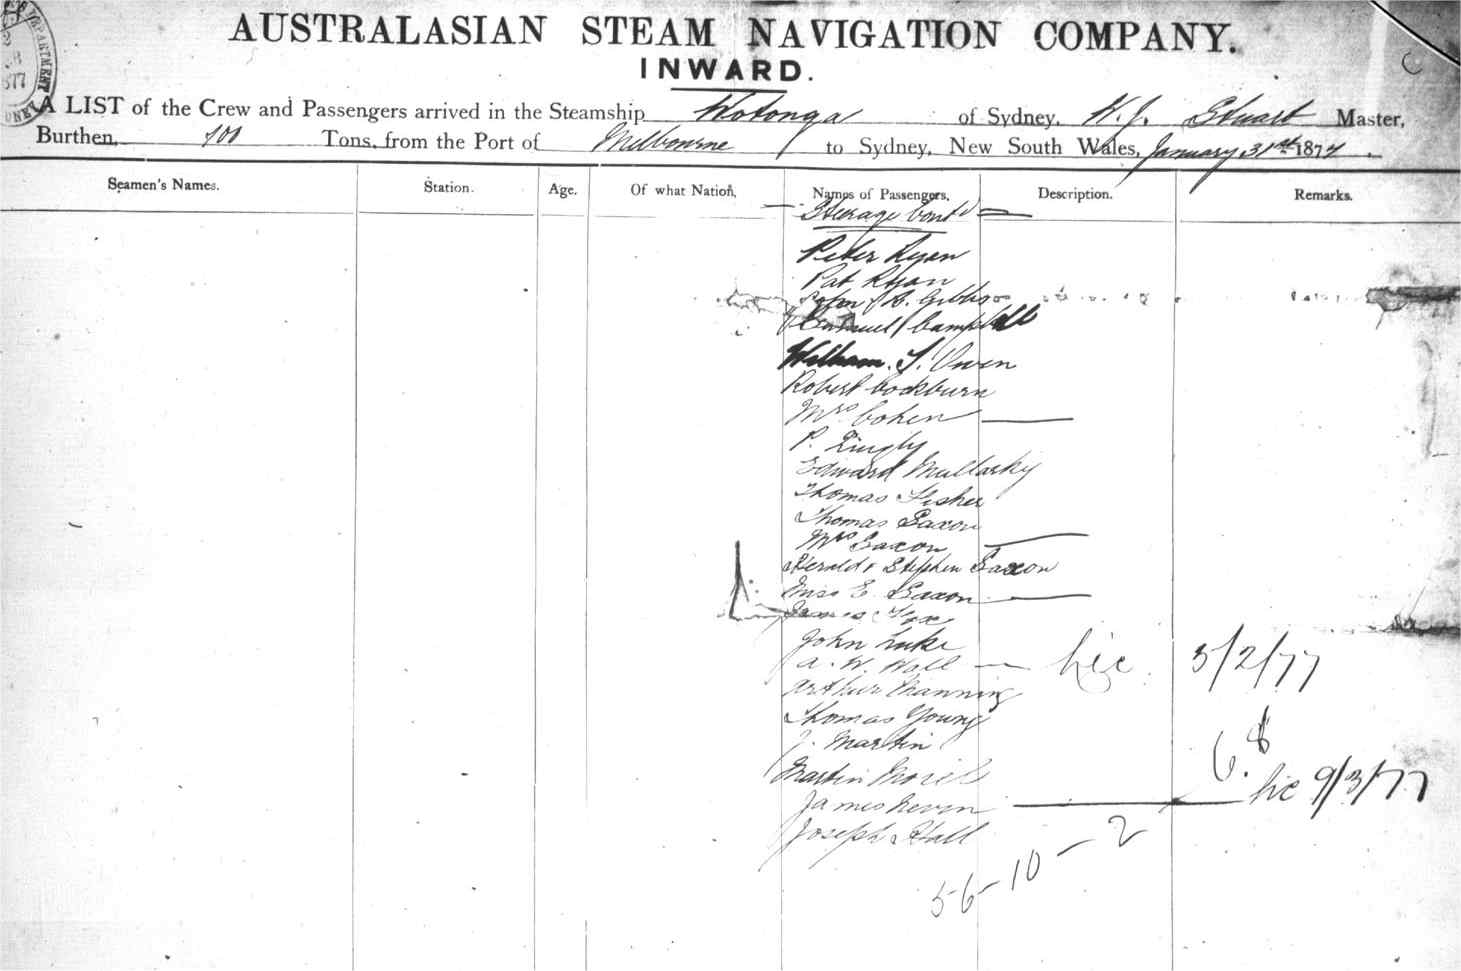 AUSTRALASIAN STEAM NAVIGATION COMPANY.
INWARD.
A LIST of the Crew and Passengers arrived in the Steamship Wotonga of Sydney, H.J. Stuart Master,
Burthen, 701 Tons, from the Port of Melbourne to Sydney, New South Wales, January 31st 1877.
Seamen's Names. Station. Age. Of what Nation, Names of Passengers, Description. Remarks.
Steerage Cont'd
Peter Ryan
Pat Ryan
John A. Gibbs
Samuel Campbell
William. S. Owen
Robert Cockburn
Mrs Cohen
P.
Edward Mullarky
Thomas Fisher
Thomas Saxon
Mrs Saxon
Herald & Stephen Saxon
Miss E. Saxon
James Fox
John Luke
A. W. Wall 5/2/77
Arthur Manning
Thomas Young
J. Martin
6.
Martin
James Nevin 9/3/77
Joseph Hall
56-10-2
C